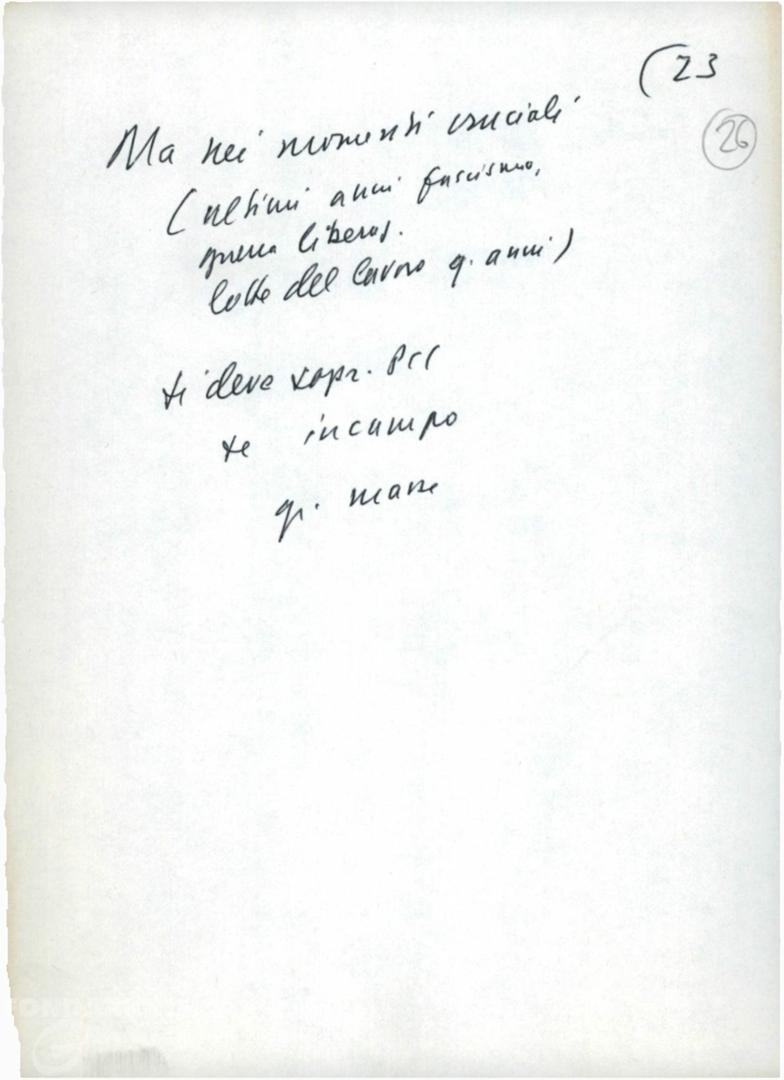 (23
26
Ma nei momenti cruciali
(ultimi anni fascismo,
guerra liberaz.
lotte del lavoro q. anni)
si deve sopr. PCI
se in campo
gr. masse